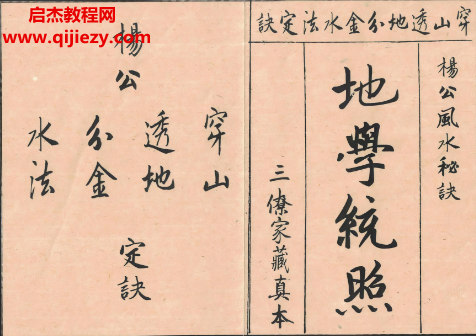 启杰教程网
www.qijiezy.com
穿山透地分金水法定訣
楊公風水秘訣
地學統照
三僚家藏真本
楊公
穿山
透地
分金
水法
定訣